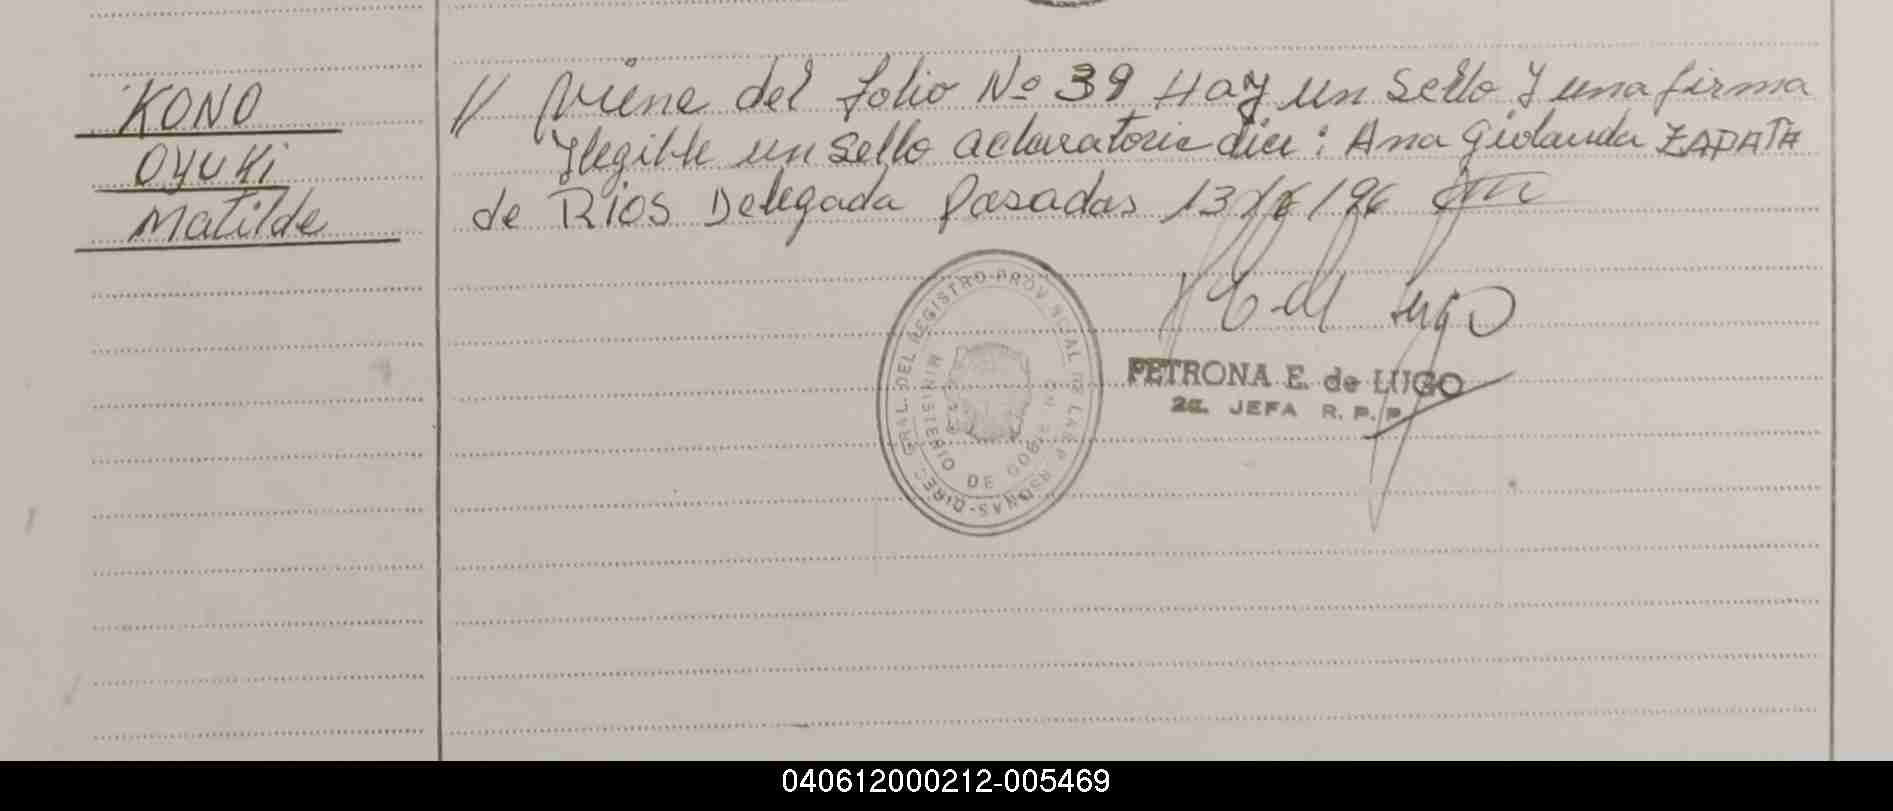 KONO
OYUKI
Matilde
// Viene del folio Nº 39 Hay un sello y una firma
Ilegible un sello aclaratorio dice: Ana Giolanda ZAPATA
de RIOS Delegada Posadas 13/ /96
DIREC. GRAL. DEL REGISTRO PROVINCIAL DE LAS PERSONAS
MINISTERIO DE GOBIERNO
P E de Lugo
PETRONA E. de LUGO
2a. JEFA R. P. P.
040612000212-005469